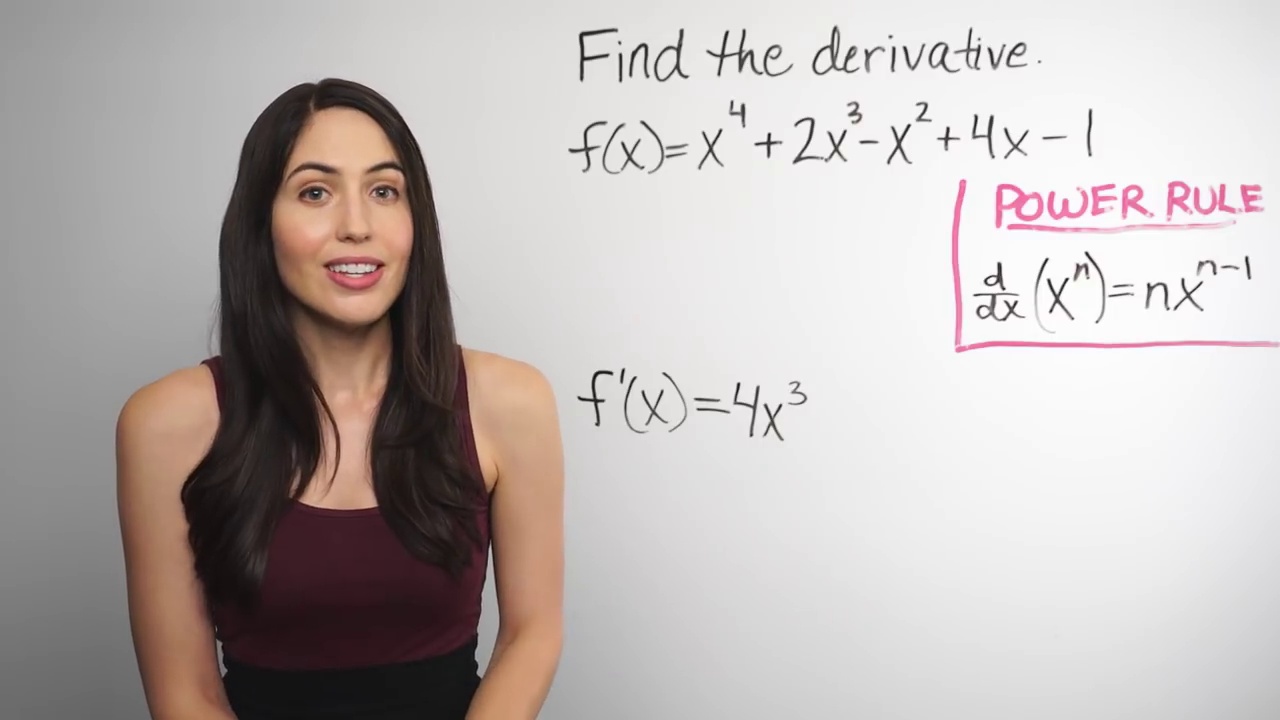 Find the derivative.
f(x)=x⁴+2x³-x²+4x-1
POWER RULE
d/dx (xⁿ)=nxⁿ⁻¹
f'(x)=4x³